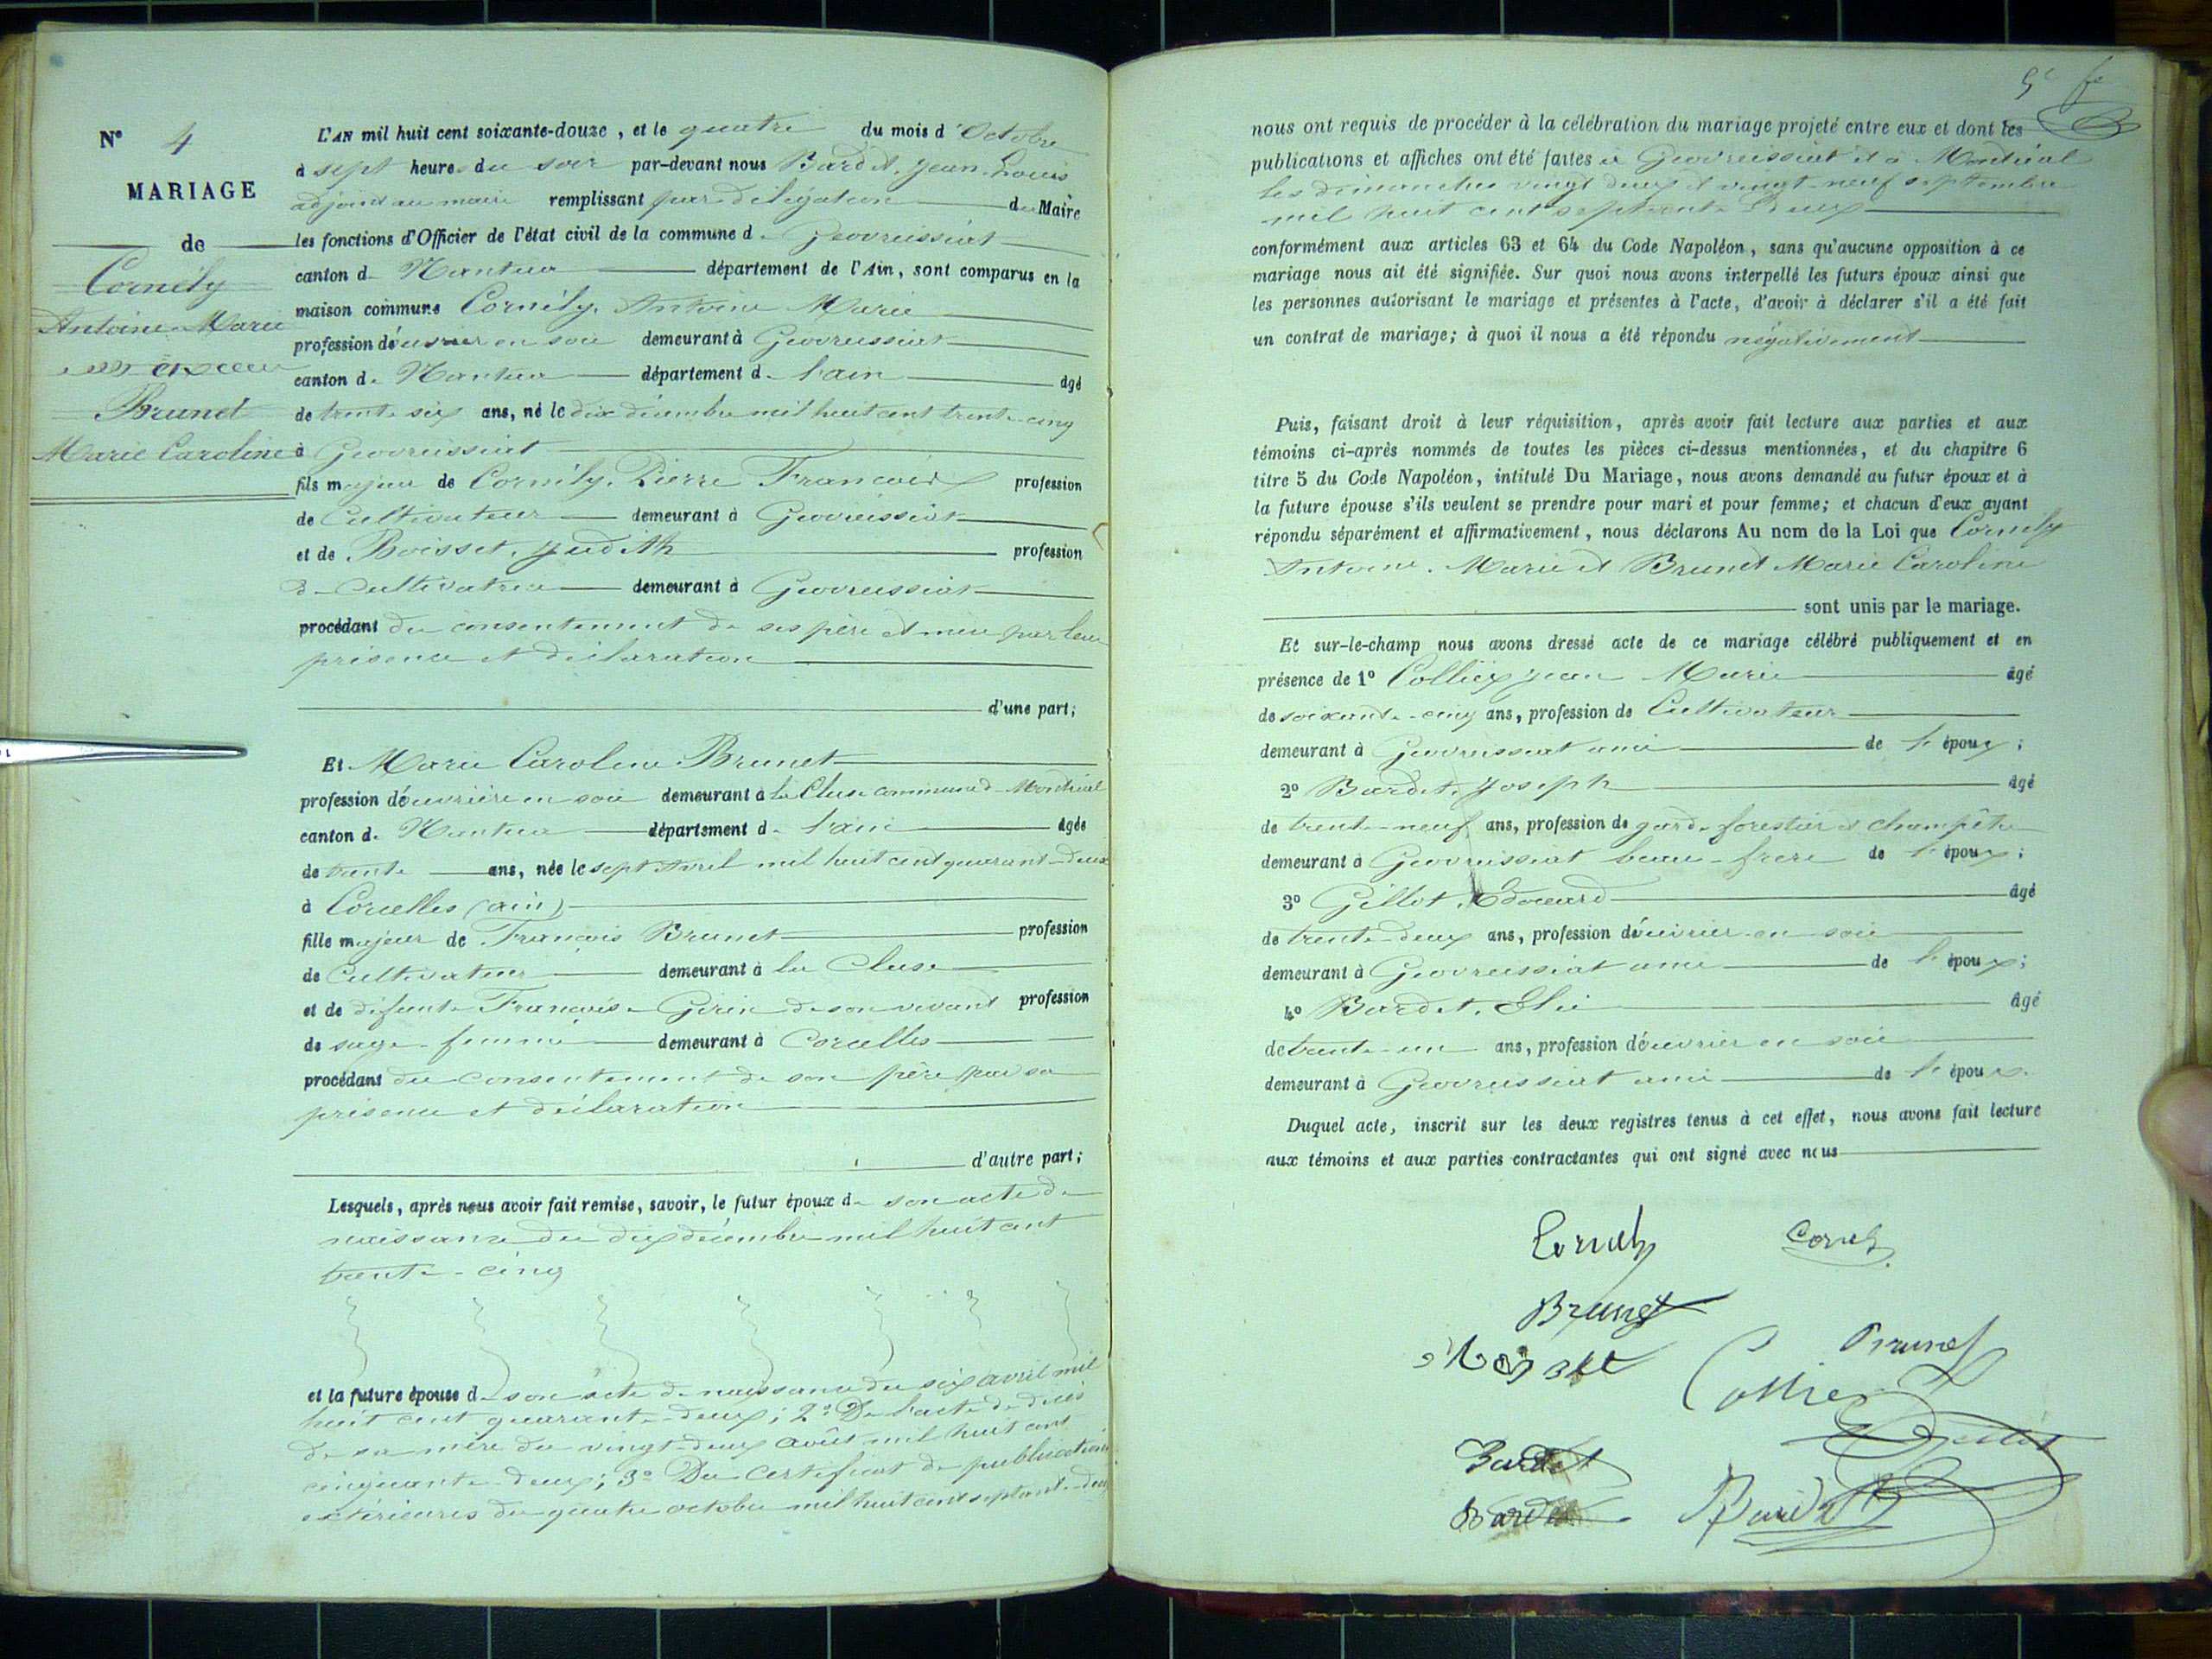 N° 4
MARIAGE
de
Cornély
Antoine Marie
avec
Brunet
Marie Caroline
L'AN mil huit cent soixante-douze, et le quatre du mois d'Octobre
à sept heures du soir par-devant nous Bardet, Jean-Louis
adjoint au maire remplissant par délégation du Maire
les fonctions d'Officier de l'état civil de la commune de Geovreissiat
canton de Nantua département de l'Ain, sont comparus en la
maison commune Cornély, Antoine Marie
profession d'ouvrier en soie demeurant à Geovreissiat
canton de Nantua département de l'ain âgé
de trente six ans, né le dix décembre mil huit cent trente-cinq
à Geovreissiat
fils majeur de Cornély, Pierre François profession
de Cultivateur demeurant à Geovreissiat
et de Boisset, Judith profession
de Cultivatrice demeurant à Geovreissiat
procédant du consentement de ses père et mère par leur
présence et déclaration
d'une part;
Et Marie Caroline Brunet
profession d'ouvrière en soie demeurant à la Cluse commune de Montréal
canton de Nantua département de l'ain âgée
de trente ans, née le sept avril mil huit cent quarante-deux
à Corcelles (ain)
fille majeur de François Brunet profession
de Cultivateur demeurant à la Cluse
et de défunte Françoise Girin de son vivant profession
de sage-femme demeurant à Corcelles
procédant du consentement de son père par sa
présence et déclaration
d'autre part;
Lesquels, après nous avoir fait remise, savoir, le futur époux de son acte de
naissance du dix décembre mil huit cent
trente-cinq
et la future épouse de son acte de naissance du six avril mil
huit cent quarante-deux; 2° De l'acte de décès
de sa mère du vingt-deux août mil huit cent
cinquante-deux; 3° Du Certificat de publications
extérieures du quatre octobre mil huit cent septante-deux
nous ont requis de procéder à la célébration du mariage projeté entre eux et dont les
publications et affiches ont été faites à Geovreissiat et à Montréal
les dimanches vingt deux et vingt-neuf septembre
mil huit cent septante deux
conformément aux articles 63 et 64 du Code Napoléon, sans qu'aucune opposition à ce
mariage nous ait été signifiée. Sur quoi nous avons interpellé les futurs époux ainsi que
les personnes autorisant le mariage et présentes à l'acte, d'avoir à déclarer s'il a été fait
un contrat de mariage; à quoi il nous a été répondu négativement
Puis, faisant droit à leur réquisition, après avoir fait lecture aux parties et aux
témoins ci-après nommés de toutes les pièces ci-dessus mentionnées, et du chapitre 6
titre 5 du Code Napoléon, intitulé Du Mariage, nous avons demandé au futur époux et à
la future épouse s'ils veulent se prendre pour mari et pour femme; et chacun d'eux ayant
répondu séparément et affirmativement, nous déclarons Au nom de la Loi que Cornély
Antoine Marie et Brunet Marie Caroline
sont unis par le mariage.
Et sur-le-champ nous avons dressé acte de ce mariage célébré publiquement et en
présence de 1° Colliex Jean Marie âgé
de soixante-cinq ans, profession de Cultivateur
demeurant à Geovreissiat ami de l'époux;
2° Bardet, Joseph âgé
de trente-neuf ans, profession de garde forestier et champêtre
demeurant à Geovreissiat beau-frère de l'époux;
3° Gillot, Edouard âgé
de trente-deux ans, profession d'ouvrier en soie
demeurant à Geovreissiat ami de l'époux;
4° Bardet, Elie âgé
de trente-un ans, profession d'ouvrier en soie
demeurant à Geovreissiat ami de l'époux.
Duquel acte, inscrit sur les deux registres tenus à cet effet, nous avons fait lecture
aux témoins et aux parties contractantes qui ont signé avec nous
Cornely Cornely
Brunet
Brunet
Colliex
Bardet Gillot
Bardet Bardet